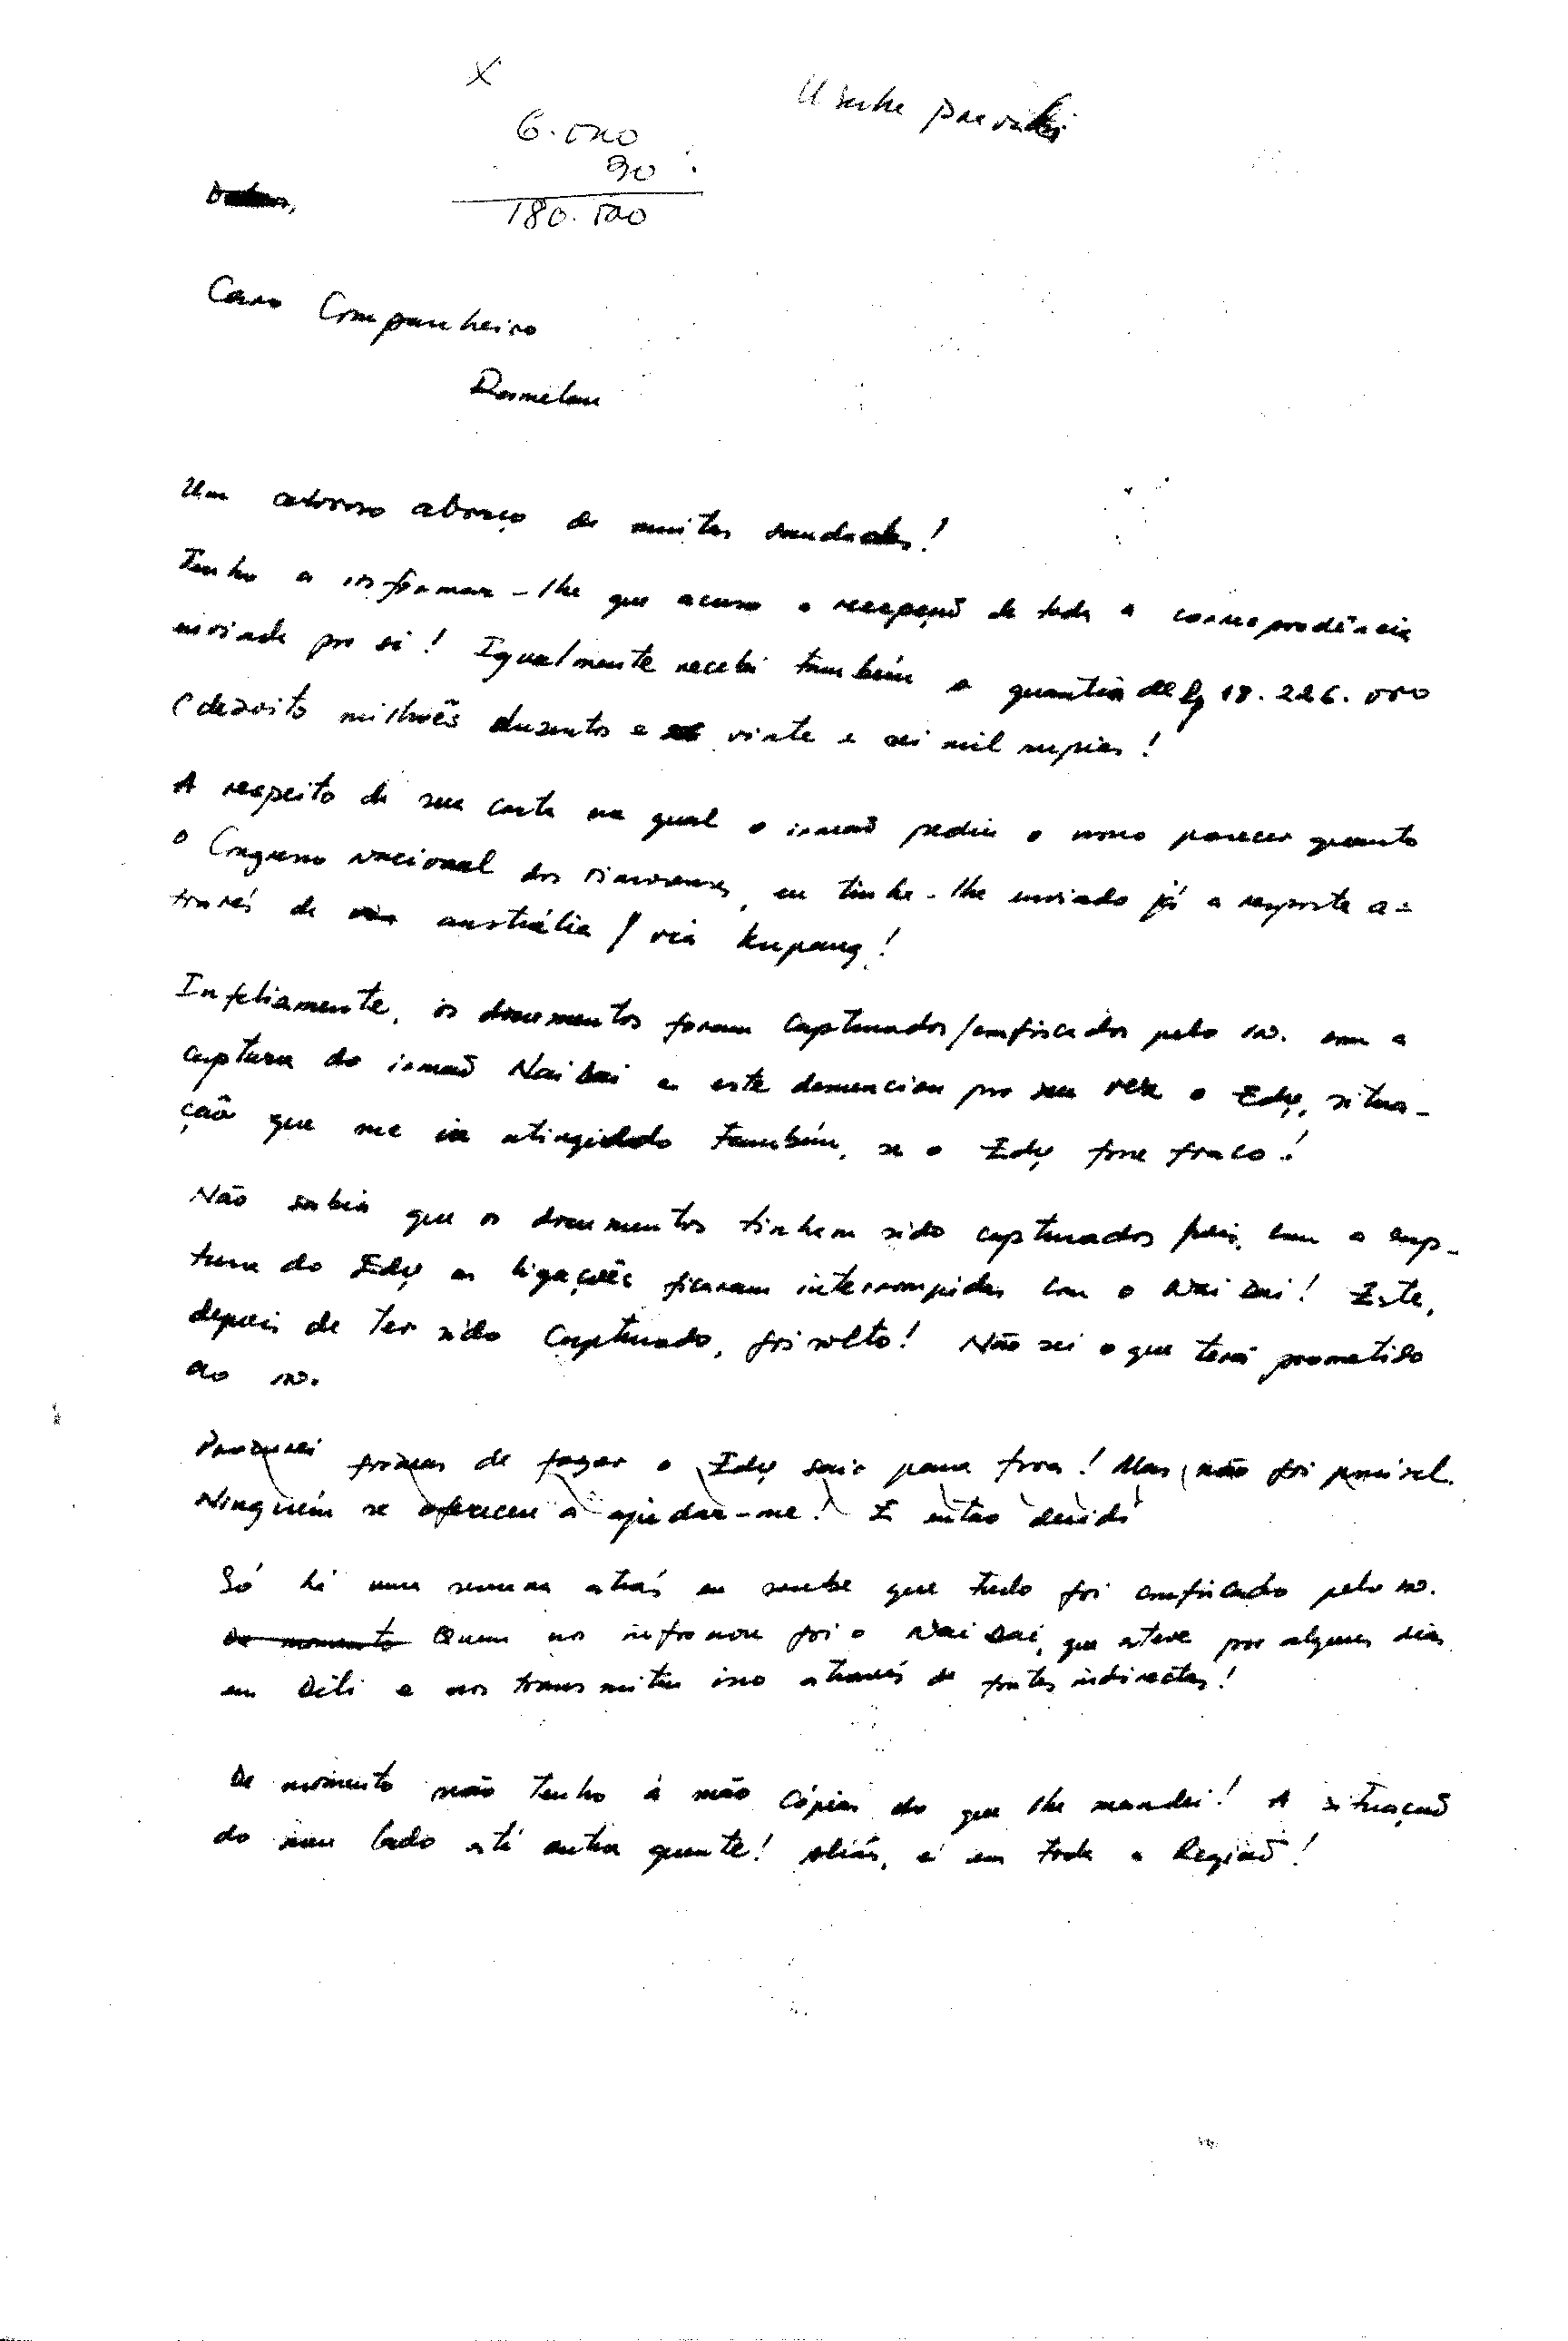 X
6.000
30
180.000
Caro Companheiro
Um caloroso abraço de muitas saudades!
Tenho a informar-lhe que acuso a recepção de toda a correspondência
enviada por si! Igualmente recebi também a quantia de 18.226.000
(dezoito milhões duzentos e vinte e sei mil rupias!
A respeito da sua carta na qual o irmão pediu o nosso parecer quanto
o Congresso Nacional dos timorenses, eu tinha-lhe enviado já a resposta a-
través de austrália / via Kupang!
Infelizmente, os documentos foram capturados/confiscados pelo in. com a
captura do irmão Nai Sai e este denunciou por sua vez o Edy, situa-
ção que me ia atingido também, se o Edy fosse fraco!
Não sabia que os documentos tinham sido capturados pois, com a cap-
tura do Edy as ligações ficaram interrompidas com o Nai Sai! Este,
depois de ter sido capturado, foi solto! Não sei o que terá prometido
ao in.
Procurei formas de fazer o Edy sair para fora! Mas, não foi possível.
Ninguém se ofereceu a ajudar-me! E então decidi
Só há uma semana atrás eu soube que tudo foi confiscado pelo in.
De momento Quem nos informou foi o Nai Sai, que esteve por alguns dias
em Dili e nos transmitiu isso através de fontes indirectas!
De momento não tenho à mão cópias do que lhe mandei! A situação
do meu lado está muita quente! Aliás, é em toda a Região!